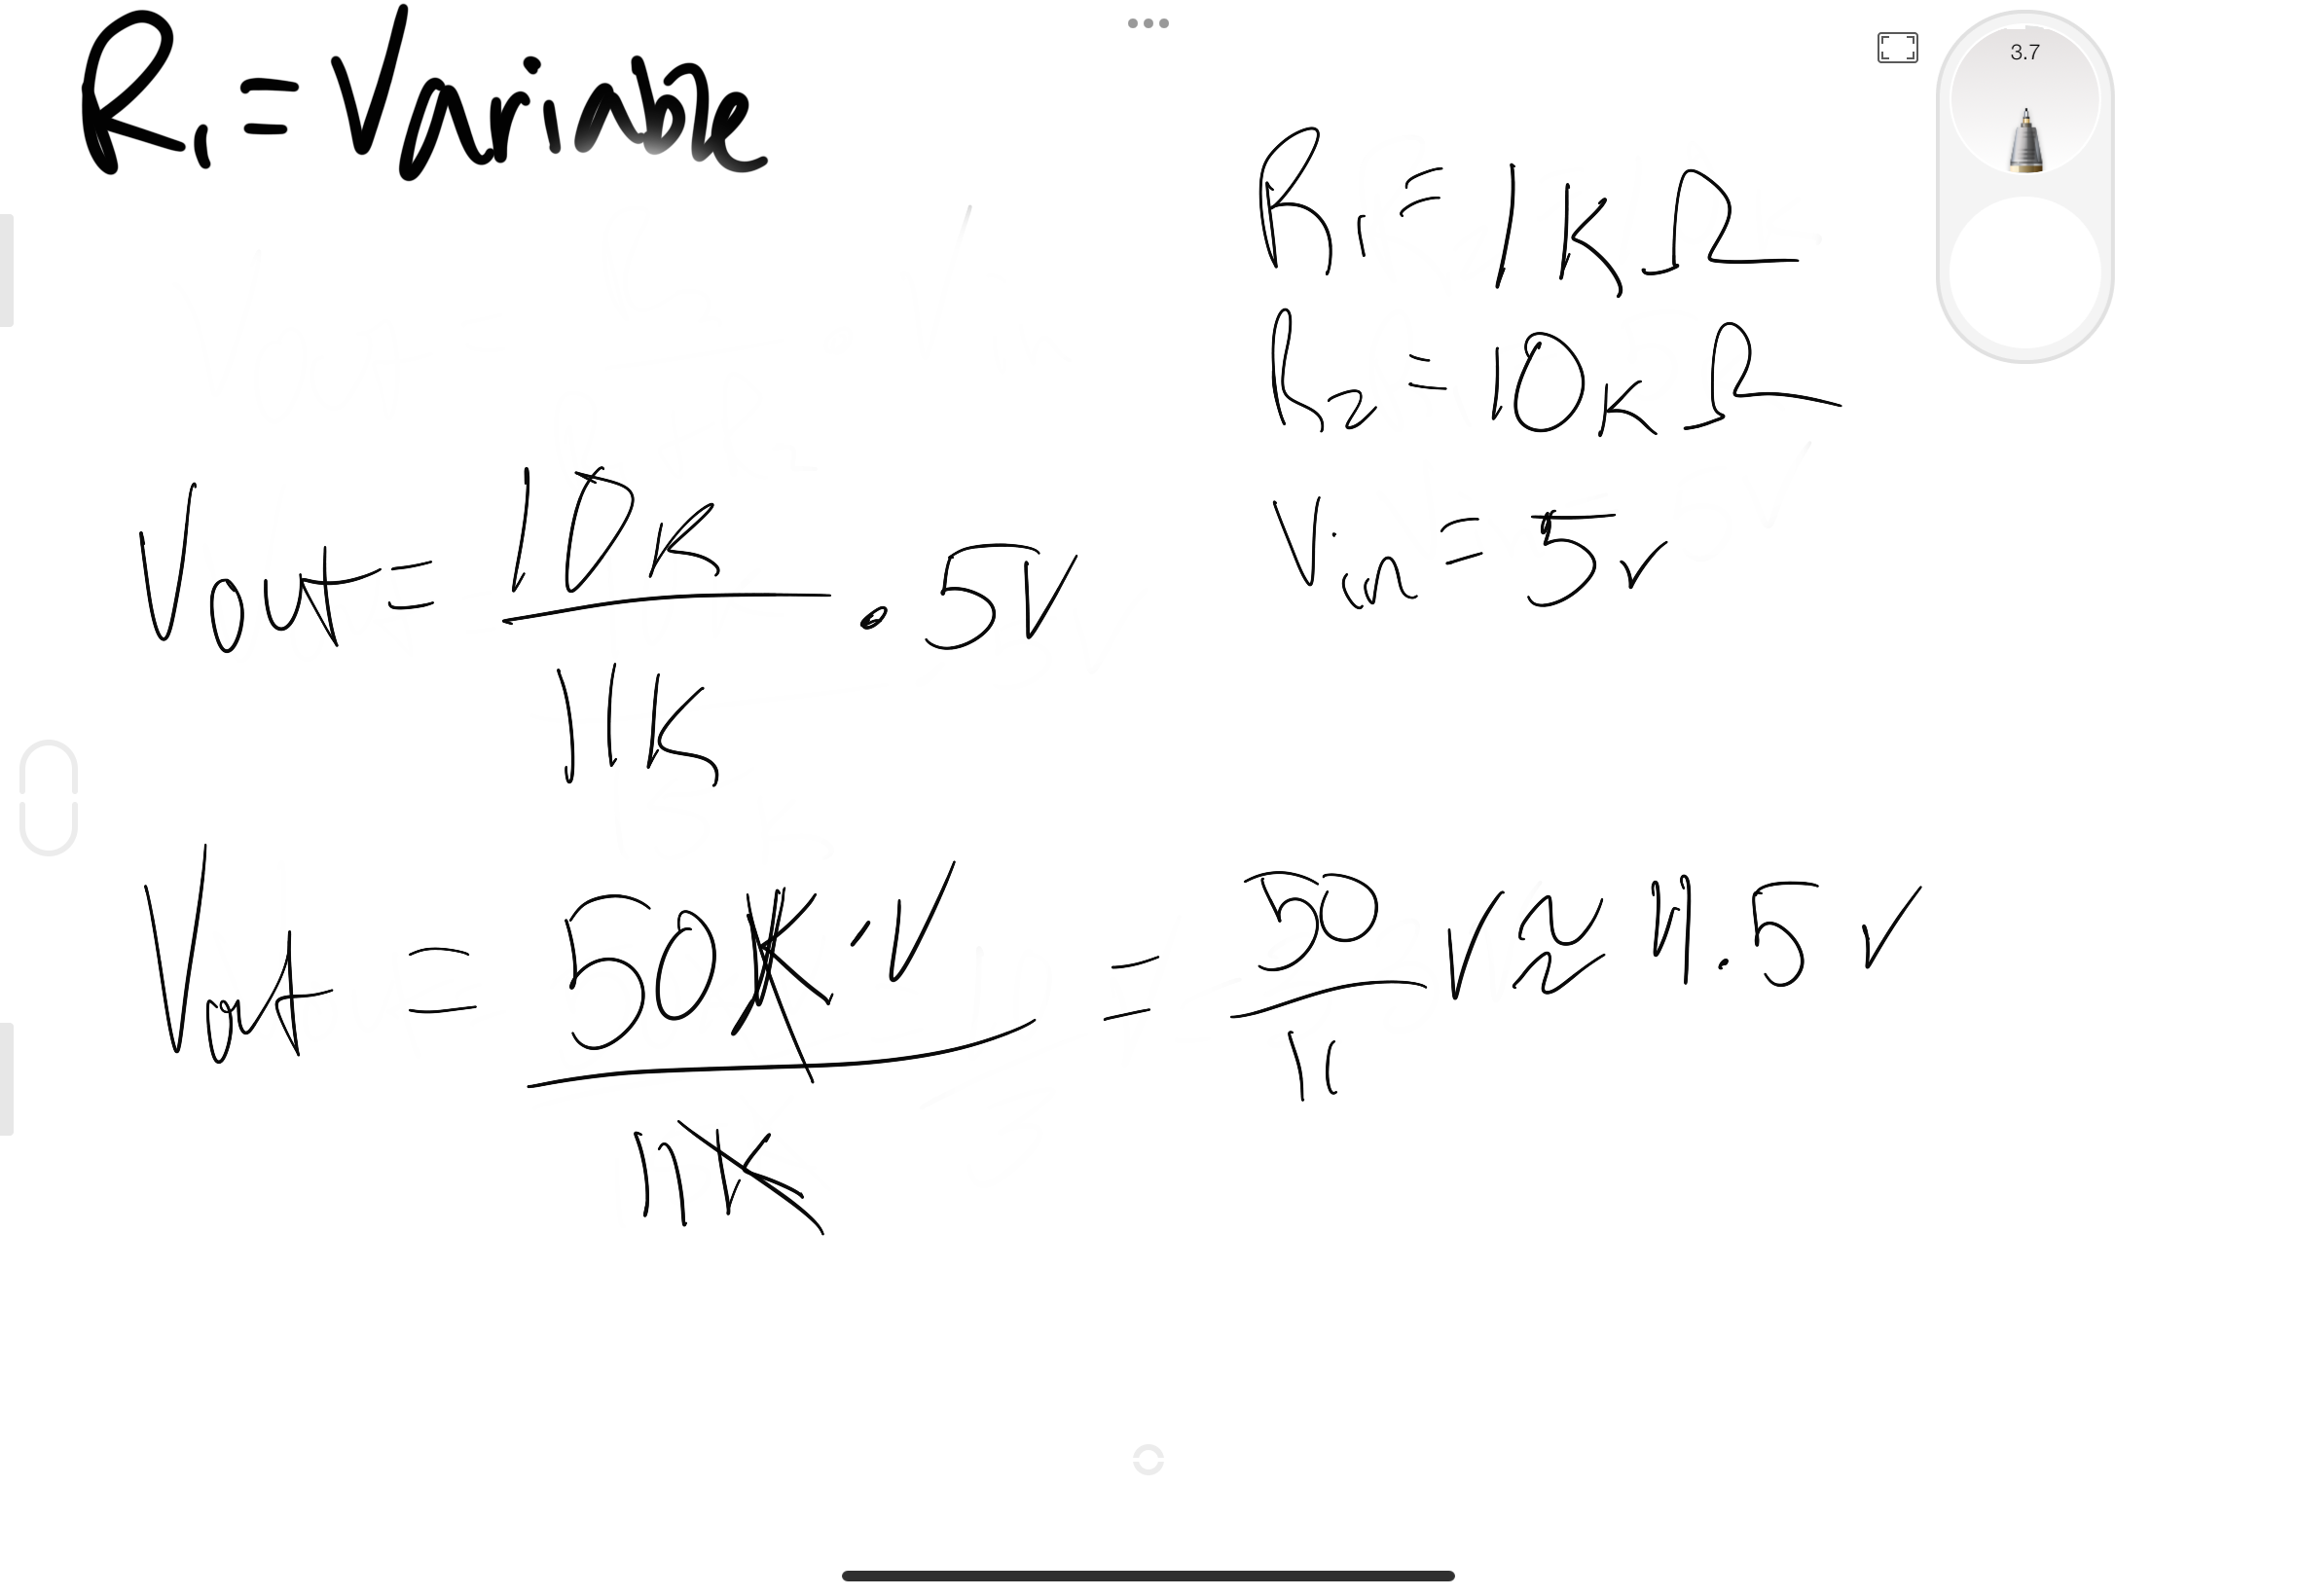 R₁ = Variable
3.7
R₁ = 1K Ω
R₂ = 10K Ω
Vin = 5v
Vout = 10K / 11K · 5V
Vout = 50K · V / 11K = 50 / 11 V ≈ 4.5 V